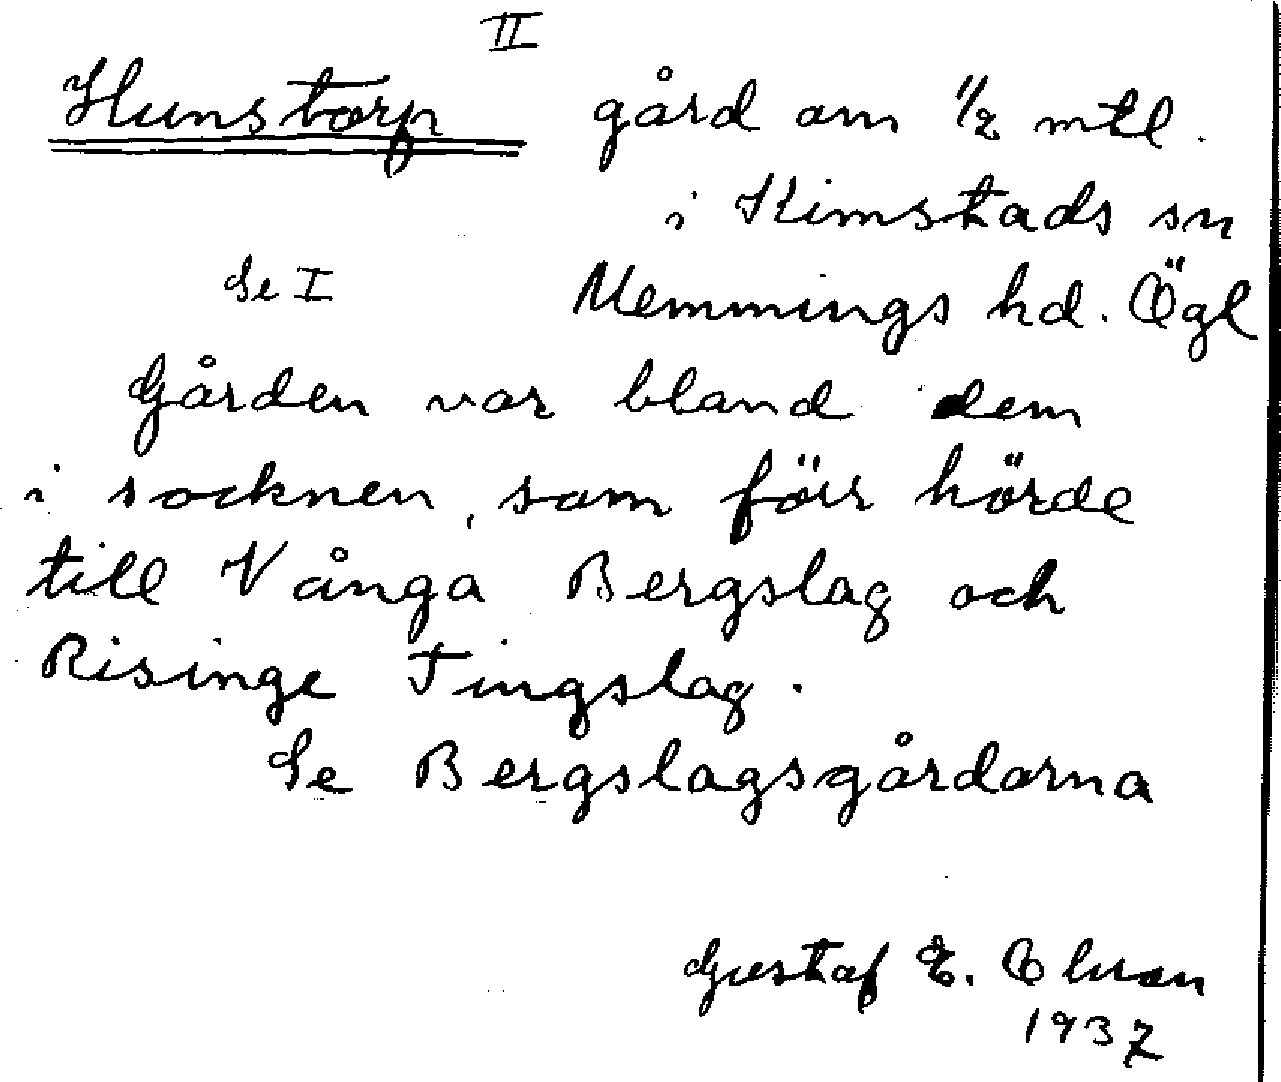 II
Hunstorp gård om 1/2 mtl.
i Kimstads sn
Se I Memmings hd. Ögl
Gården var bland dem
i socknen, som förr hörde
till Vånga Bergslag och
Risinge Tingslag.
Se Bergslagsgårdarna
Gustaf E.
1937